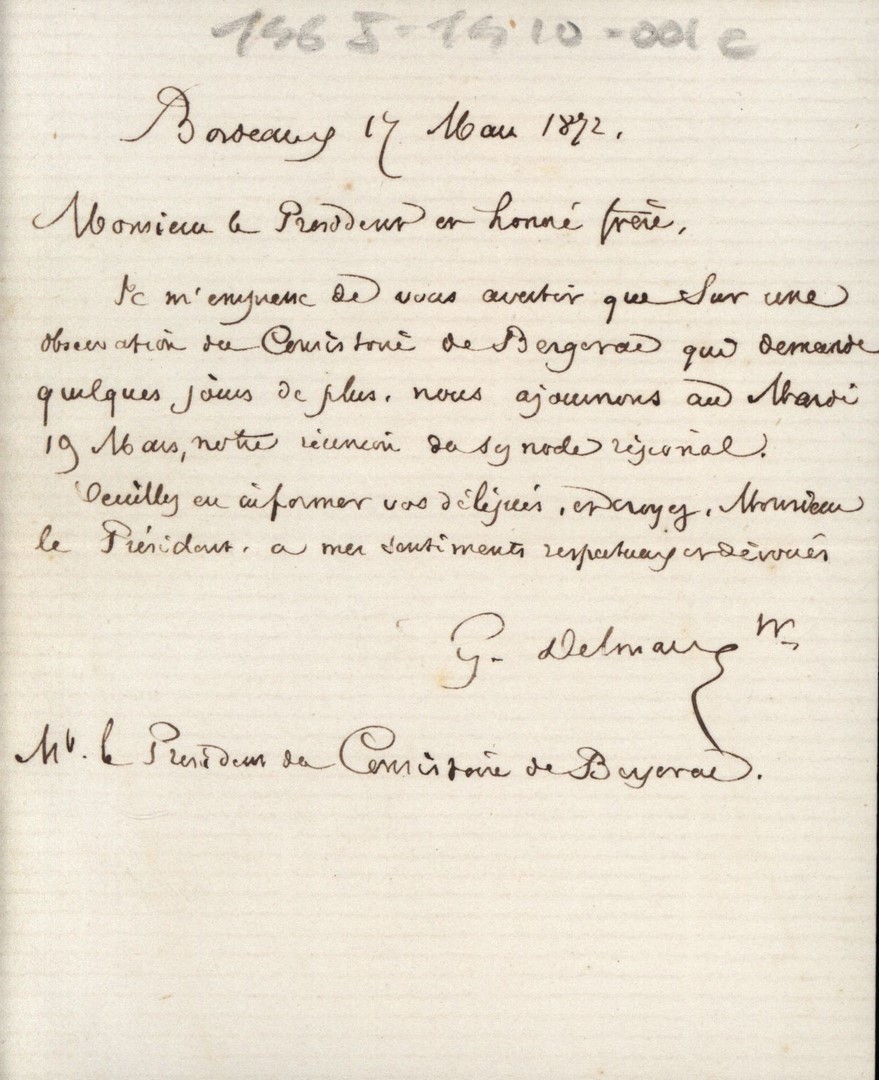 1965-1910-001c
Bordeaux 17 Mars 1872.
Monsieur le Président et honoré frère,
Je m'empresse de vous avertir que sur une
observation du Consistoire de Bergerac qui demande
quelques jours de plus, nous ajournons au Mardi
19 Mars, notre réunion du synode régional.
Veuillez en informer vos délégués, et croyez, Monsieur
le Président, a mes sentiments respectueux et dévoués
G. Delmas
Mr. le Président du Consistoire de Bergerac.